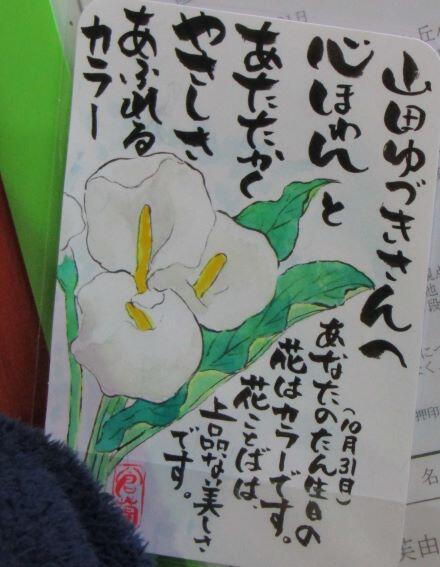 山田ゆづきさんへ
心ほわんと
あたたかく
やさしさ
あふれる
カラー
あなたのたん生日の
(10月31日)
花はカラーです。
花ことばは、
上品な美しさ
です。
押印
名